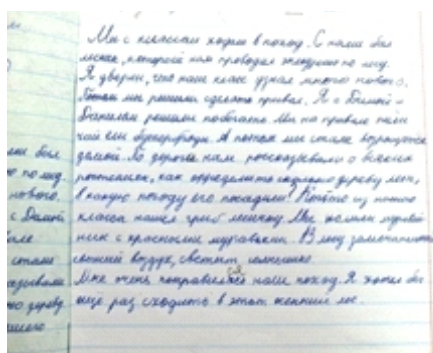 Мы с классом ходим в поход. С нами был
лесник, который нам проводил экскурсию по лесу.
Я уверен, что наш класс узнал много нового.
Потом мы решили сделать привал. Я с Димой и
Данилом решили поболтать. Мы на привале пили
чай ели бутерброды. А потом мы стали возвращаться
домой. По дороге нам рассказывали о всяких
растениях, как определить сколько дереву лет,
в какую погоду его посадили. Кто-то из нашего
класса нашёл гриб лисичку. Мы видели муравей
ник с красными муравьями. В лесу замечательный
свежий воздух, светит солнышко.
Мне очень понравился наш поход. Я хотел бы
ещё раз сходить в этот лес.
или был
ю по лед.
нового.
с Димой
или
стали
казывали
ко дереву
нашего